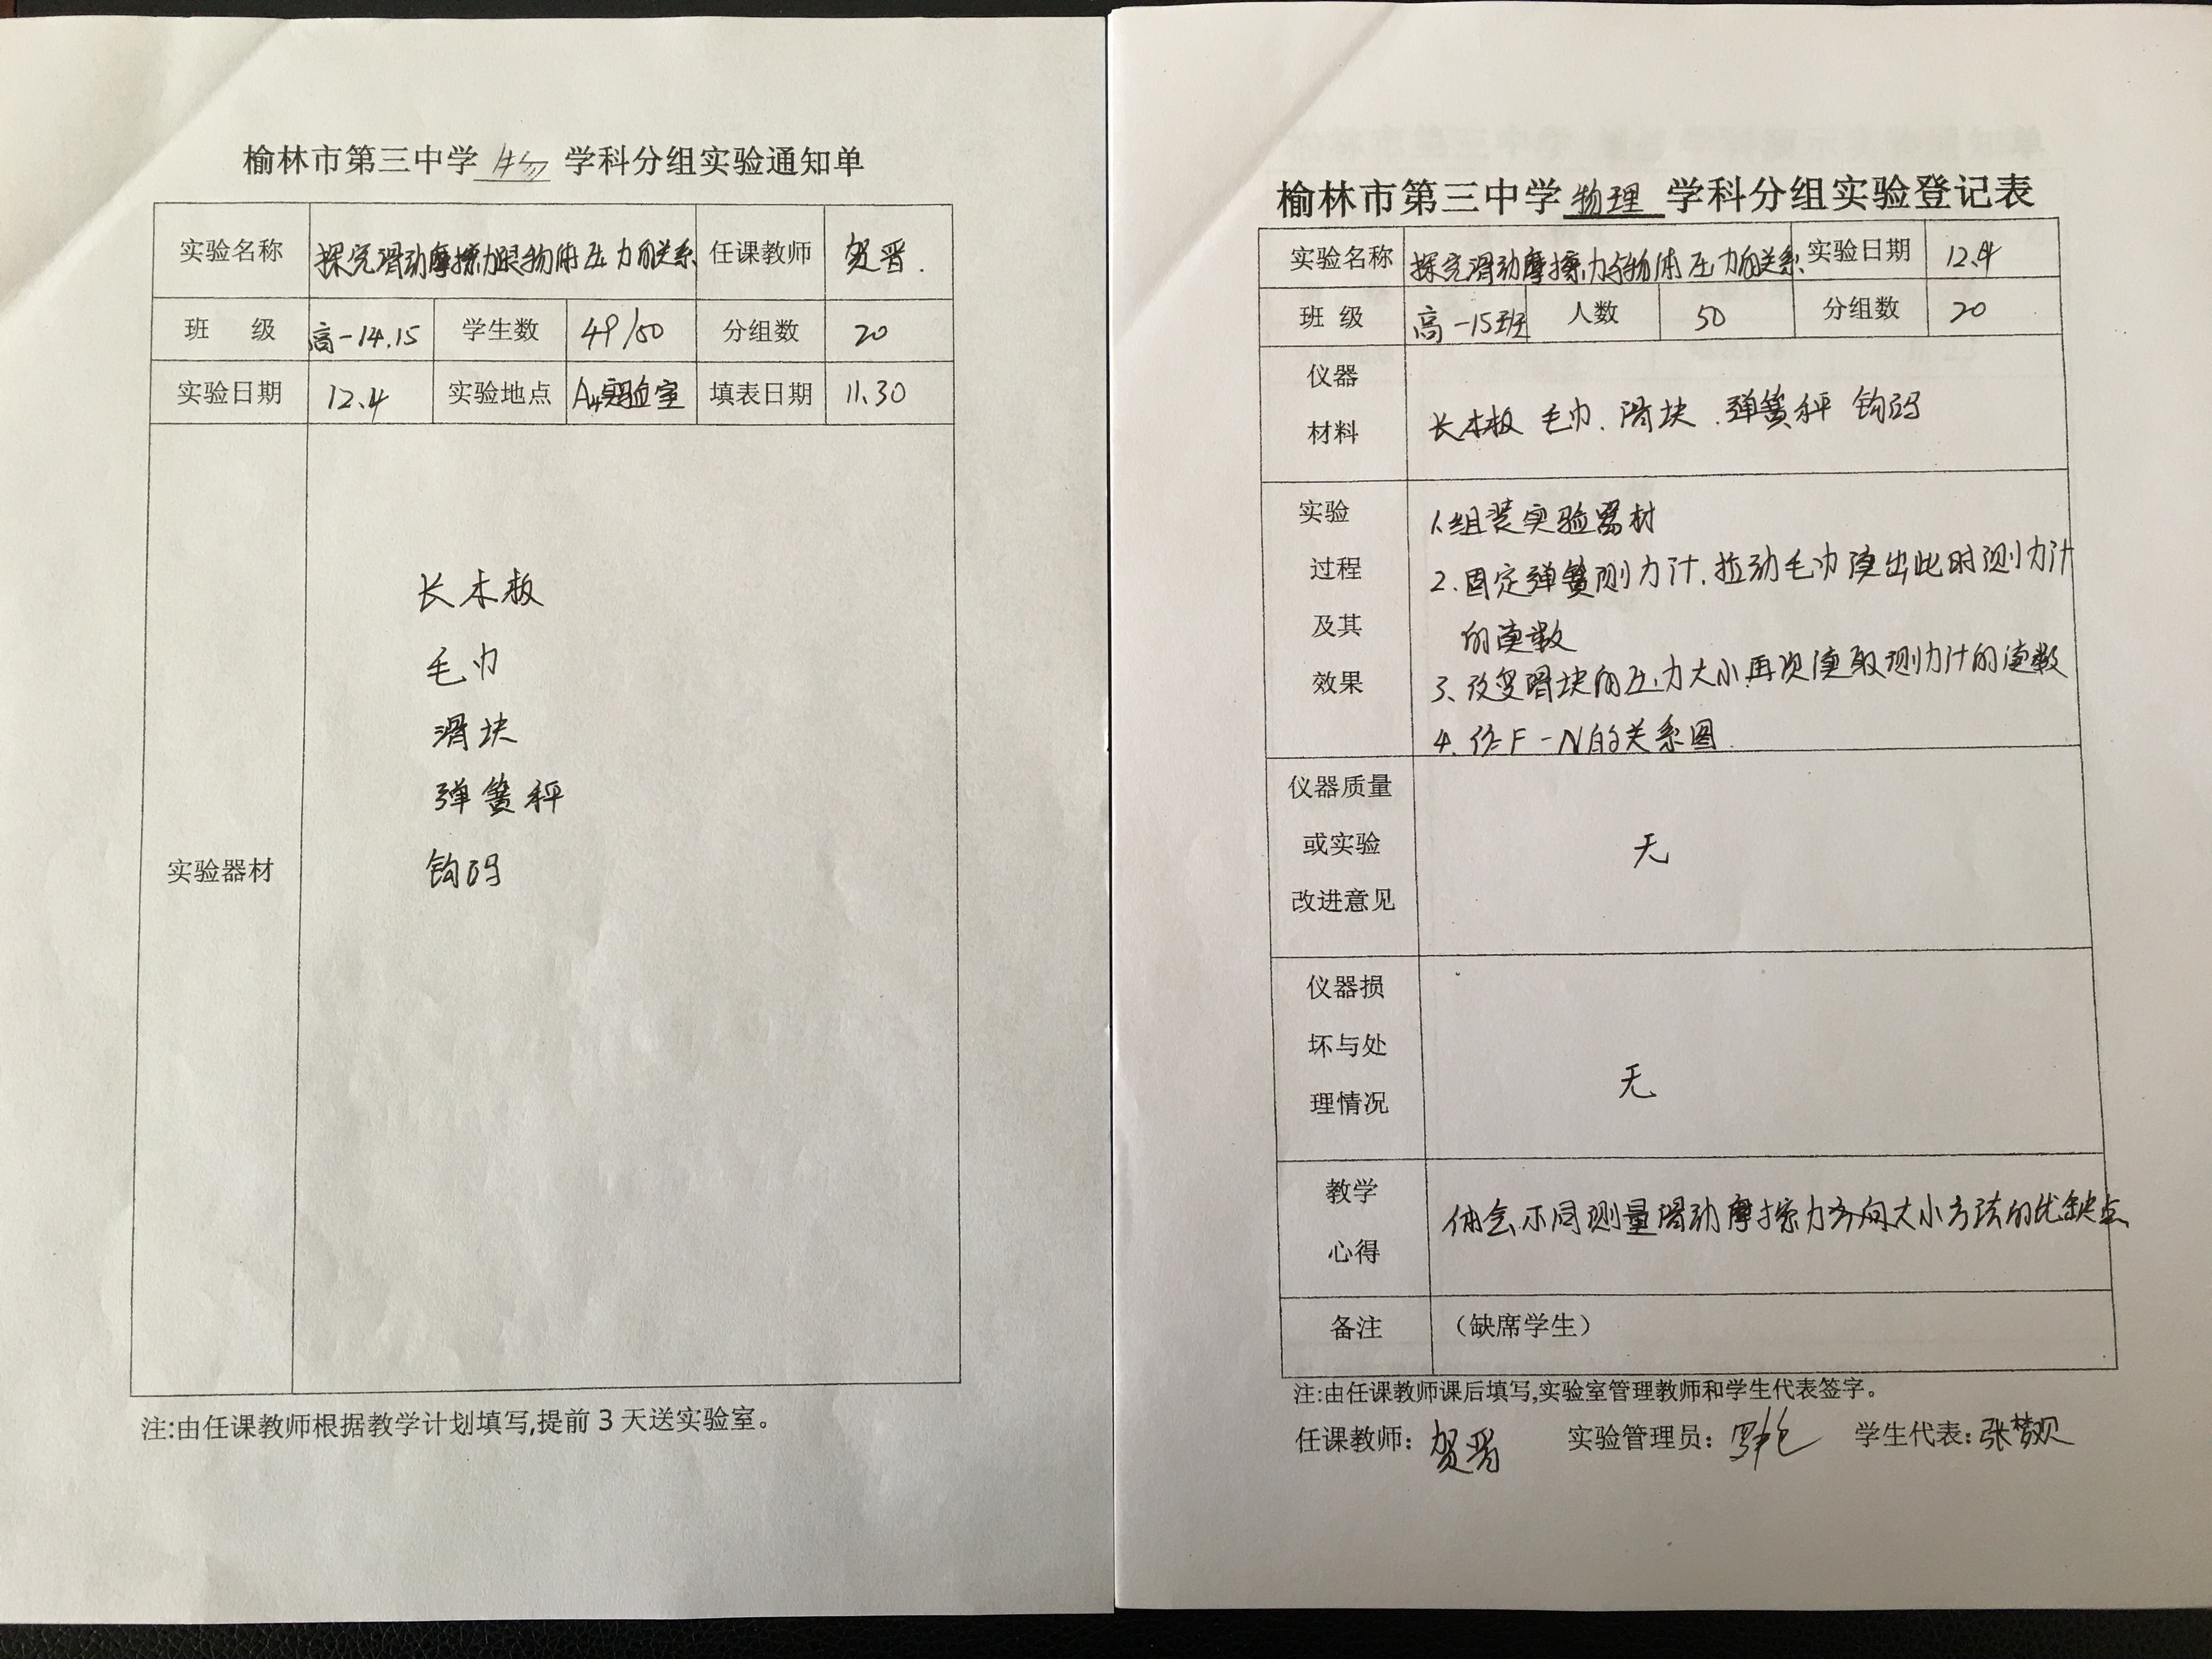 榆林市第三中学 物 学科分组实验通知单
实验名称 探究滑动摩擦力跟物体压力的关系 任课教师 贺晋.
班 级 高一14.15 学生数 49/50 分组数 20
实验日期 12.4 实验地点 A4实验室 填表日期 11.30
长木板
毛巾
滑块
弹簧秤
实验器材 钩码
注:由任课教师根据教学计划填写,提前3天送实验室。
榆林市第三中学 物理 学科分组实验登记表
实验名称 探究滑动摩擦力与物体压力的关系 实验日期 12.4
班 级 高一15班 人数 50 分组数 20
仪器
材料
长木板 毛巾.滑块.弹簧秤 钩码
实验
过程
及其
效果
1.组装实验器材
2.固定弹簧测力计.拉动毛巾读出此时测力计
的读数
3、改变滑块的压力大小再次读取测力计的读数
4.作F-N的关系图.
仪器质量
或实验
改进意见
无
仪器损
坏与处
理情况
无
教学
心得
体会不同测量滑动摩擦力方向大小方法的优缺点
备注 (缺席学生)
注:由任课教师课后填写,实验室管理教师和学生代表签字。
任课教师: 贺晋 实验管理员: 学生代表: 张梦贝